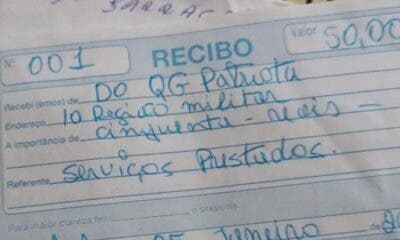 Nº 001 RECIBO Valor 50,00
Recebi (emos) de DO QG Patriota
Endereço 10 Região militar
A importância de cinquenta - reais -
Referente serviços Prustudos.
Para maior clareza firm o presente
de